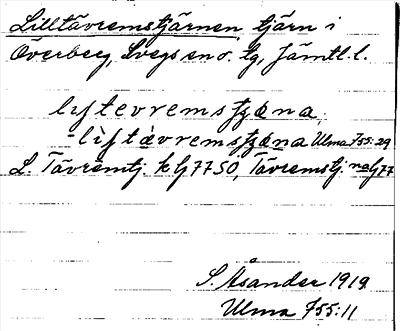 Lilltävremstjärnen tjärn i
Överberg, Svegs sn o. tg, Jämtl. l.
liftevremsʃzæna
-lìftàvremsʃzæna Ulma 755:29
L. Tävremtj. kG 7750, Tävremstj. na G 77
S. Åsander 1919
Ulma 755:11